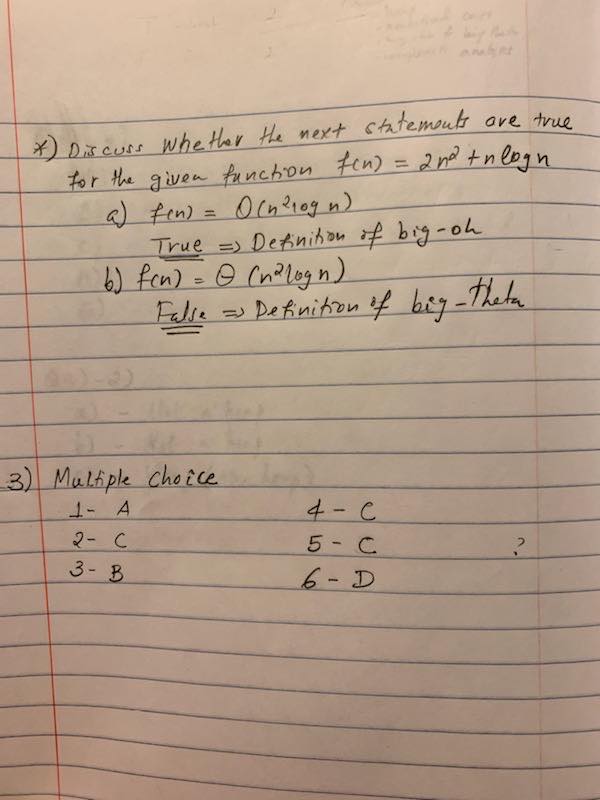 *) Discuss whether the next statements are true
for the given function f(n) = 2n² + n log n
a) f(n) = O(n² log n)
True => Definition of big-oh
b) f(n) = Θ (n² log n)
False => Definition of big-Theta
3) Multiple choice
1- A 4 - C
2- C 5 - C ?
3- B 6 - D